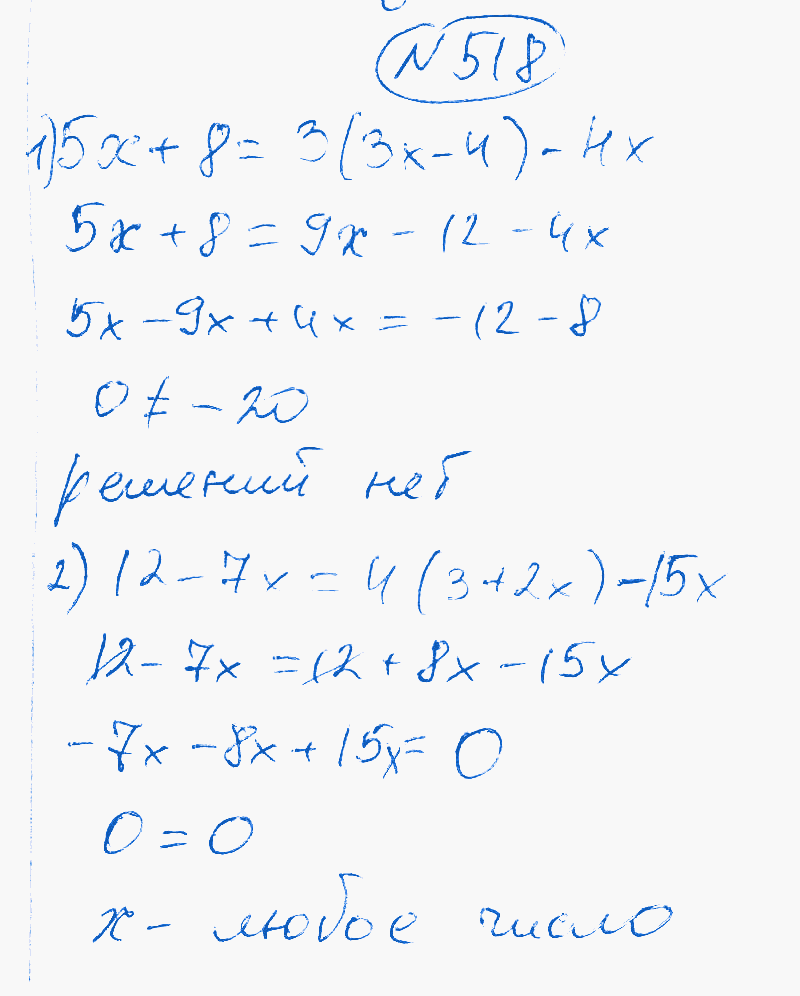 N 518
1) 5x + 8 = 3(3x - 4) - 4x
5x + 8 = 9x - 12 - 4x
5x - 9x + 4x = -12 - 8
0 ≠ -20
решений нет
2) 12 - 7x = 4(3 + 2x) - 15x
12 - 7x = 12 + 8x - 15x
-7x - 8x + 15x = 0
0 = 0
x - любое число